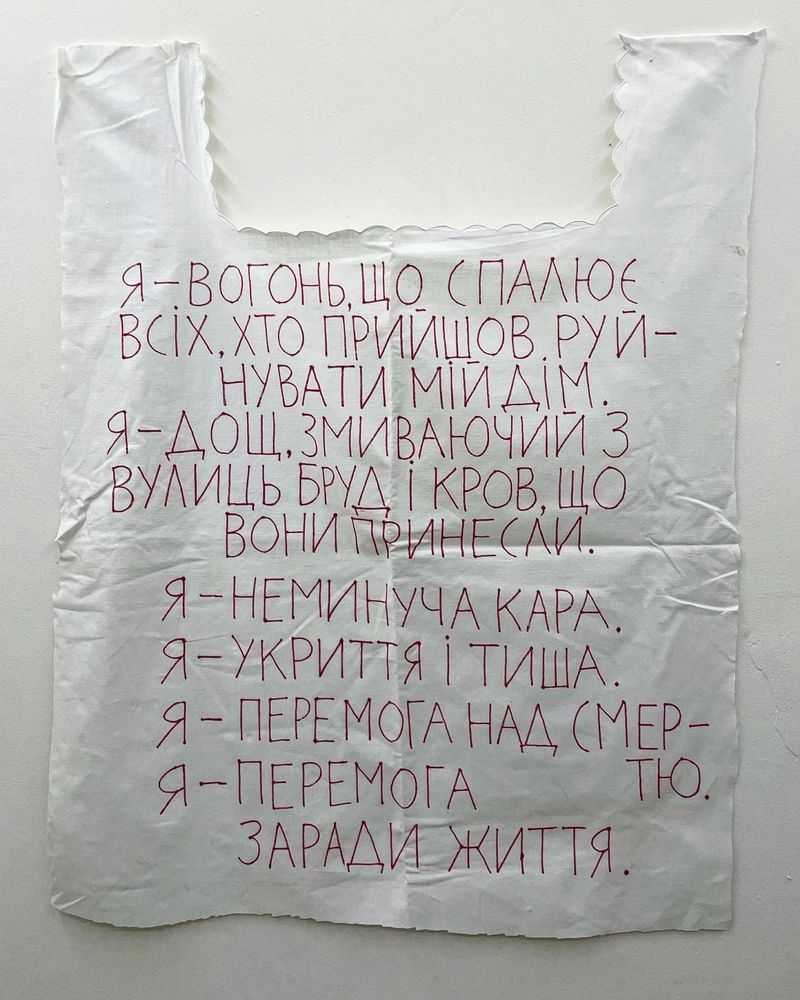 Я – ВОГОНЬ, ЩО СПАЛЮЄ
ВСІХ, ХТО ПРИЙШОВ РУЙ–
НУВАТИ МІЙ ДІМ.
Я – ДОЩ, ЗМИВАЮЧИЙ З
ВУЛИЦЬ БРУД І КРОВ, ЩО
ВОНИ ПРИНЕСЛИ.
Я – НЕМИНУЧА КАРА.
Я – УКРИТТЯ І ТИША.
Я – ПЕРЕМОГА НАД СМЕР–
ТЮ.
Я – ПЕРЕМОГА
ЗАРАДИ ЖИТТЯ.